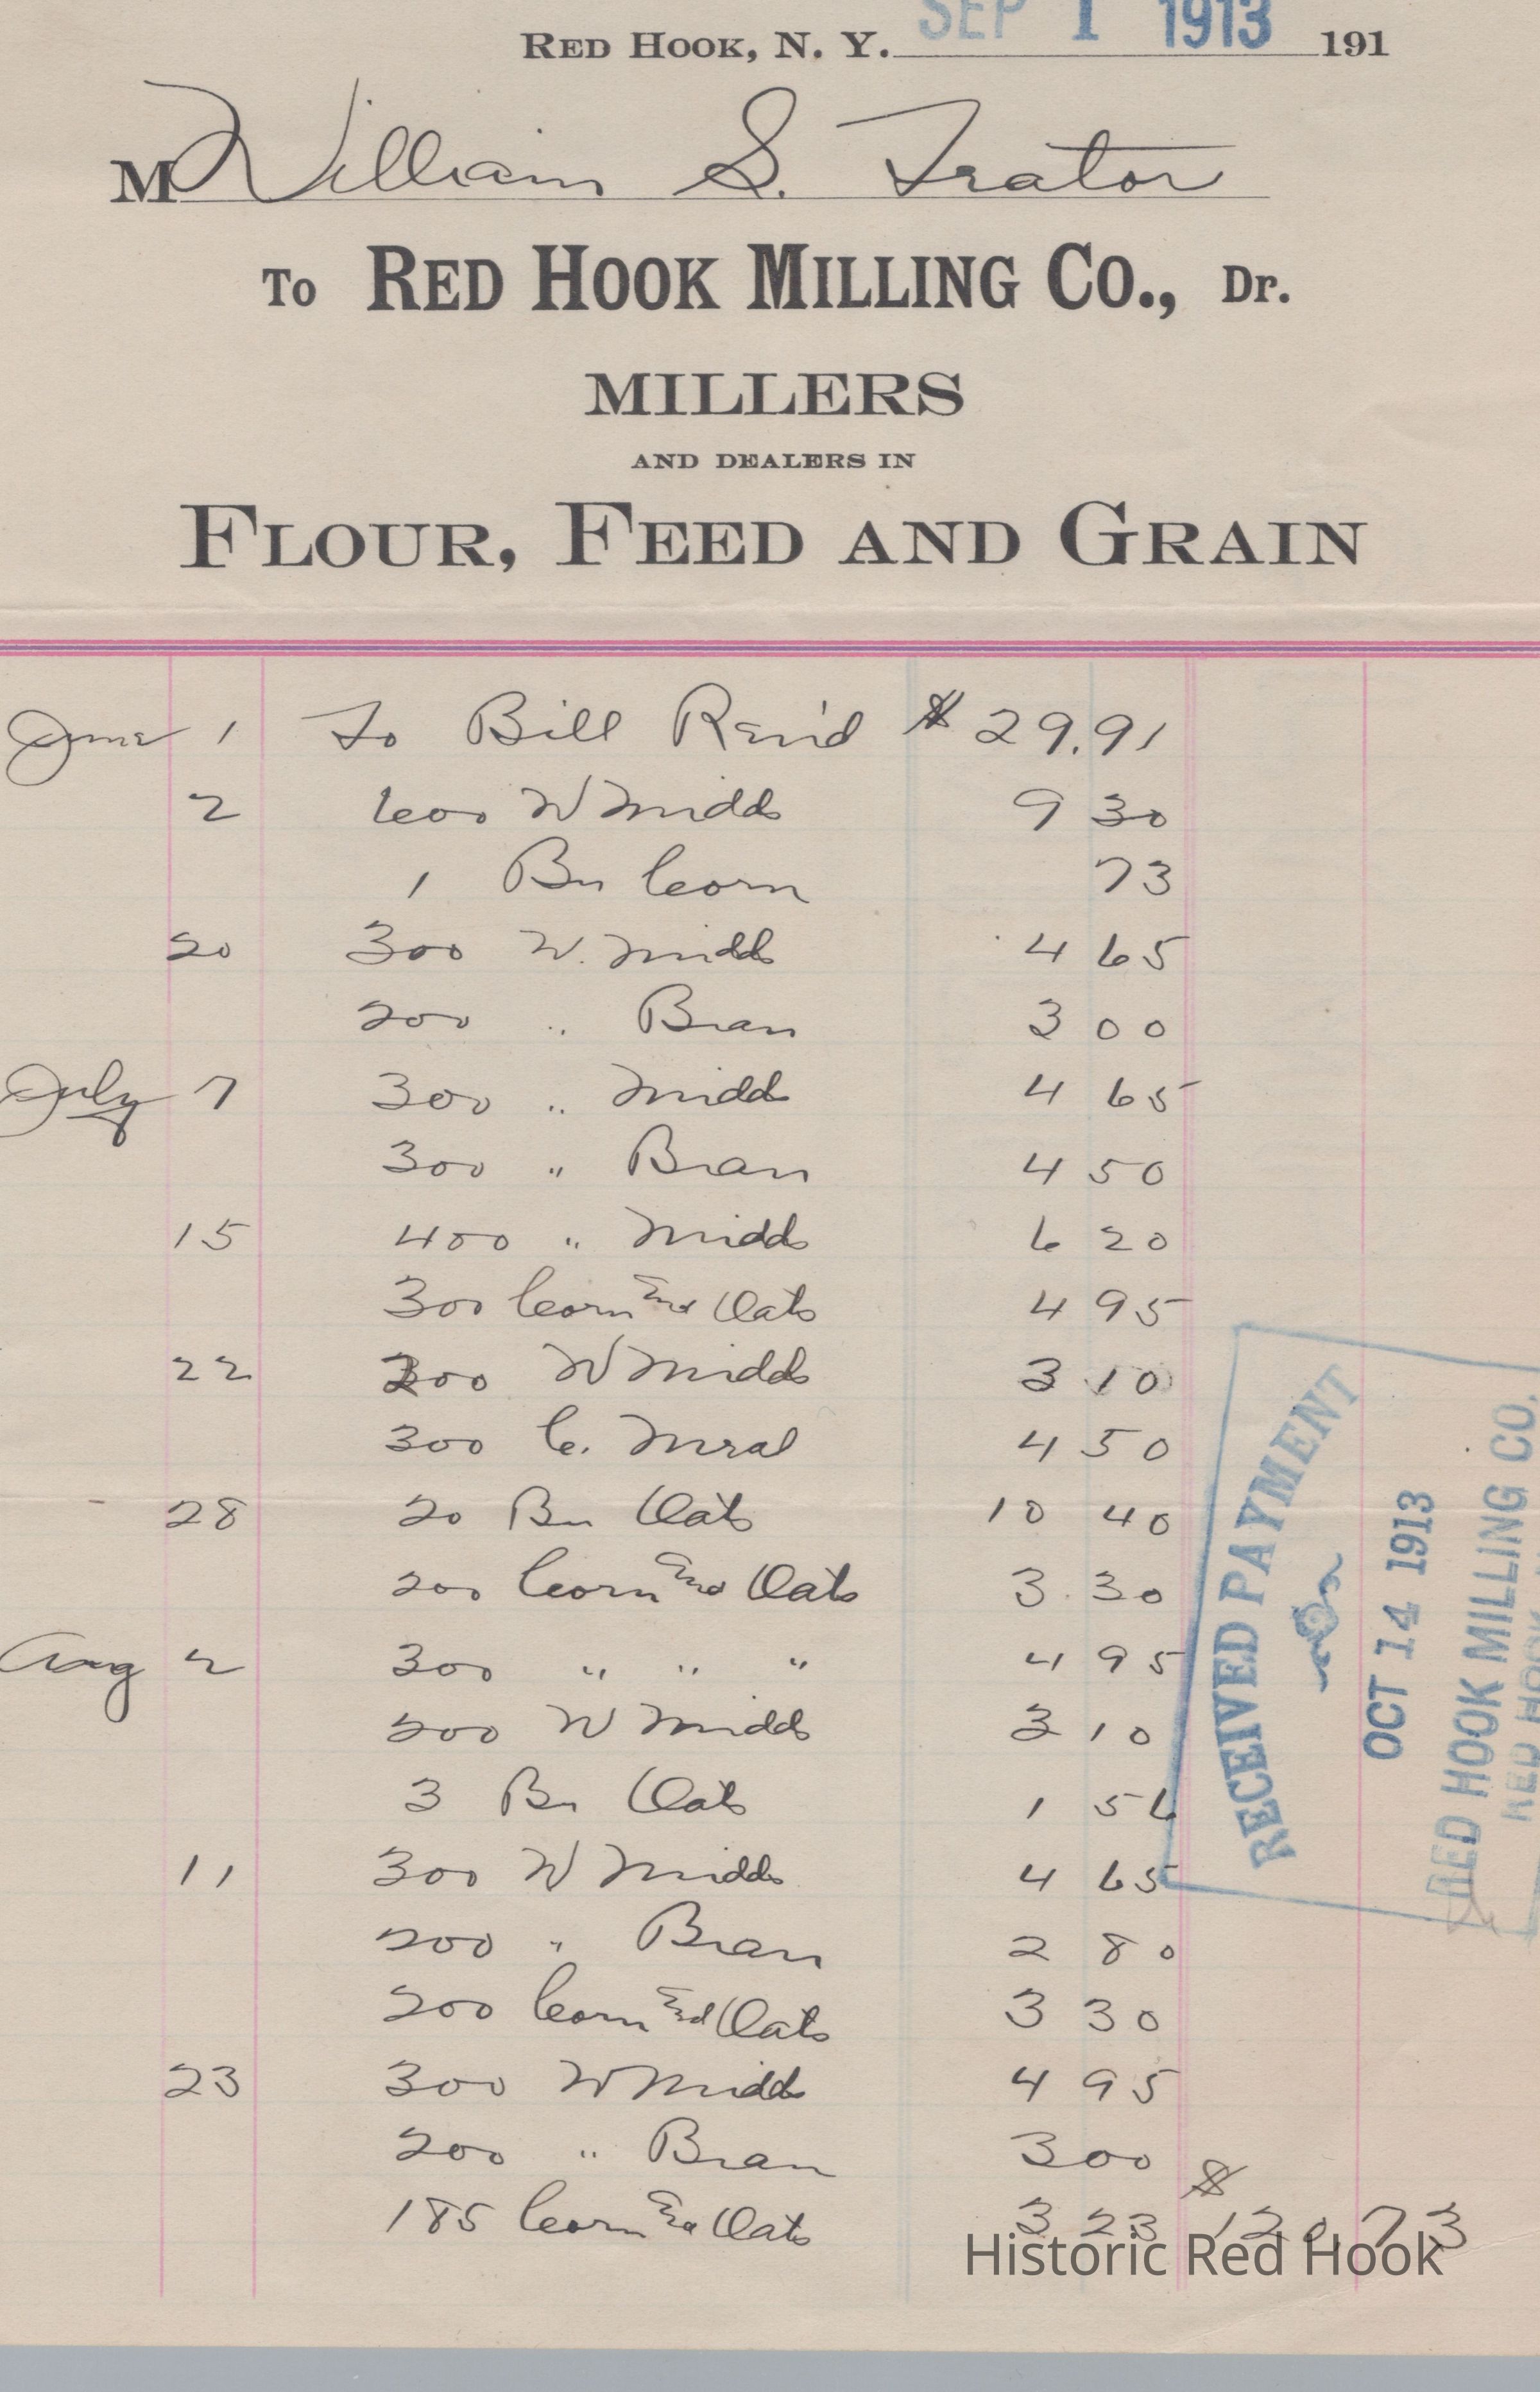 RED HOOK, N. Y. SEP 1 1913 191
M William S. Trator
To RED HOOK MILLING CO., Dr.
MILLERS
AND DEALERS IN
FLOUR, FEED AND GRAIN
June 1 To Bill Ren'd $ 29.91
2 600 W Midds 9 30
1 Bu Corn 73
20 300 W. Midds 4 65
200 " Bran 3 00
July 7 300 " Midds 4 65
300 " Bran 4 50
15 400 " Midds 6 20
300 Corn and Oats 4 95
22 200 W Midds 3 10
300 C. Meal 4 50
28 20 Bu Oats 10 40
200 Corn and Oats 3.30
Aug 2 300 " " " 4 95
200 W Midds 3 10
3 Bu Oats 1 56
11 300 W Midds 4 65
200 " Bran 2 80
200 Corn and Oats 3 30
23 300 W Midds 4 95
200 " Bran 3 00
185 Corn and Oats 3 23 $ 120.73
RECEIVED PAYMENT
OCT 14 1913
RED HOOK MILLING CO.
RED HOOK
Historic Red Hook